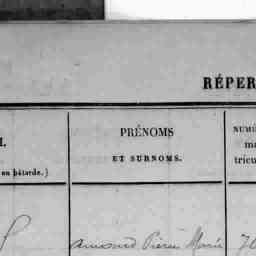 RÉPER
PRÉNOMS
ET SURNOMS.
NUMÉ
ma
tricu
en bâtarde.)
Pierre Marie